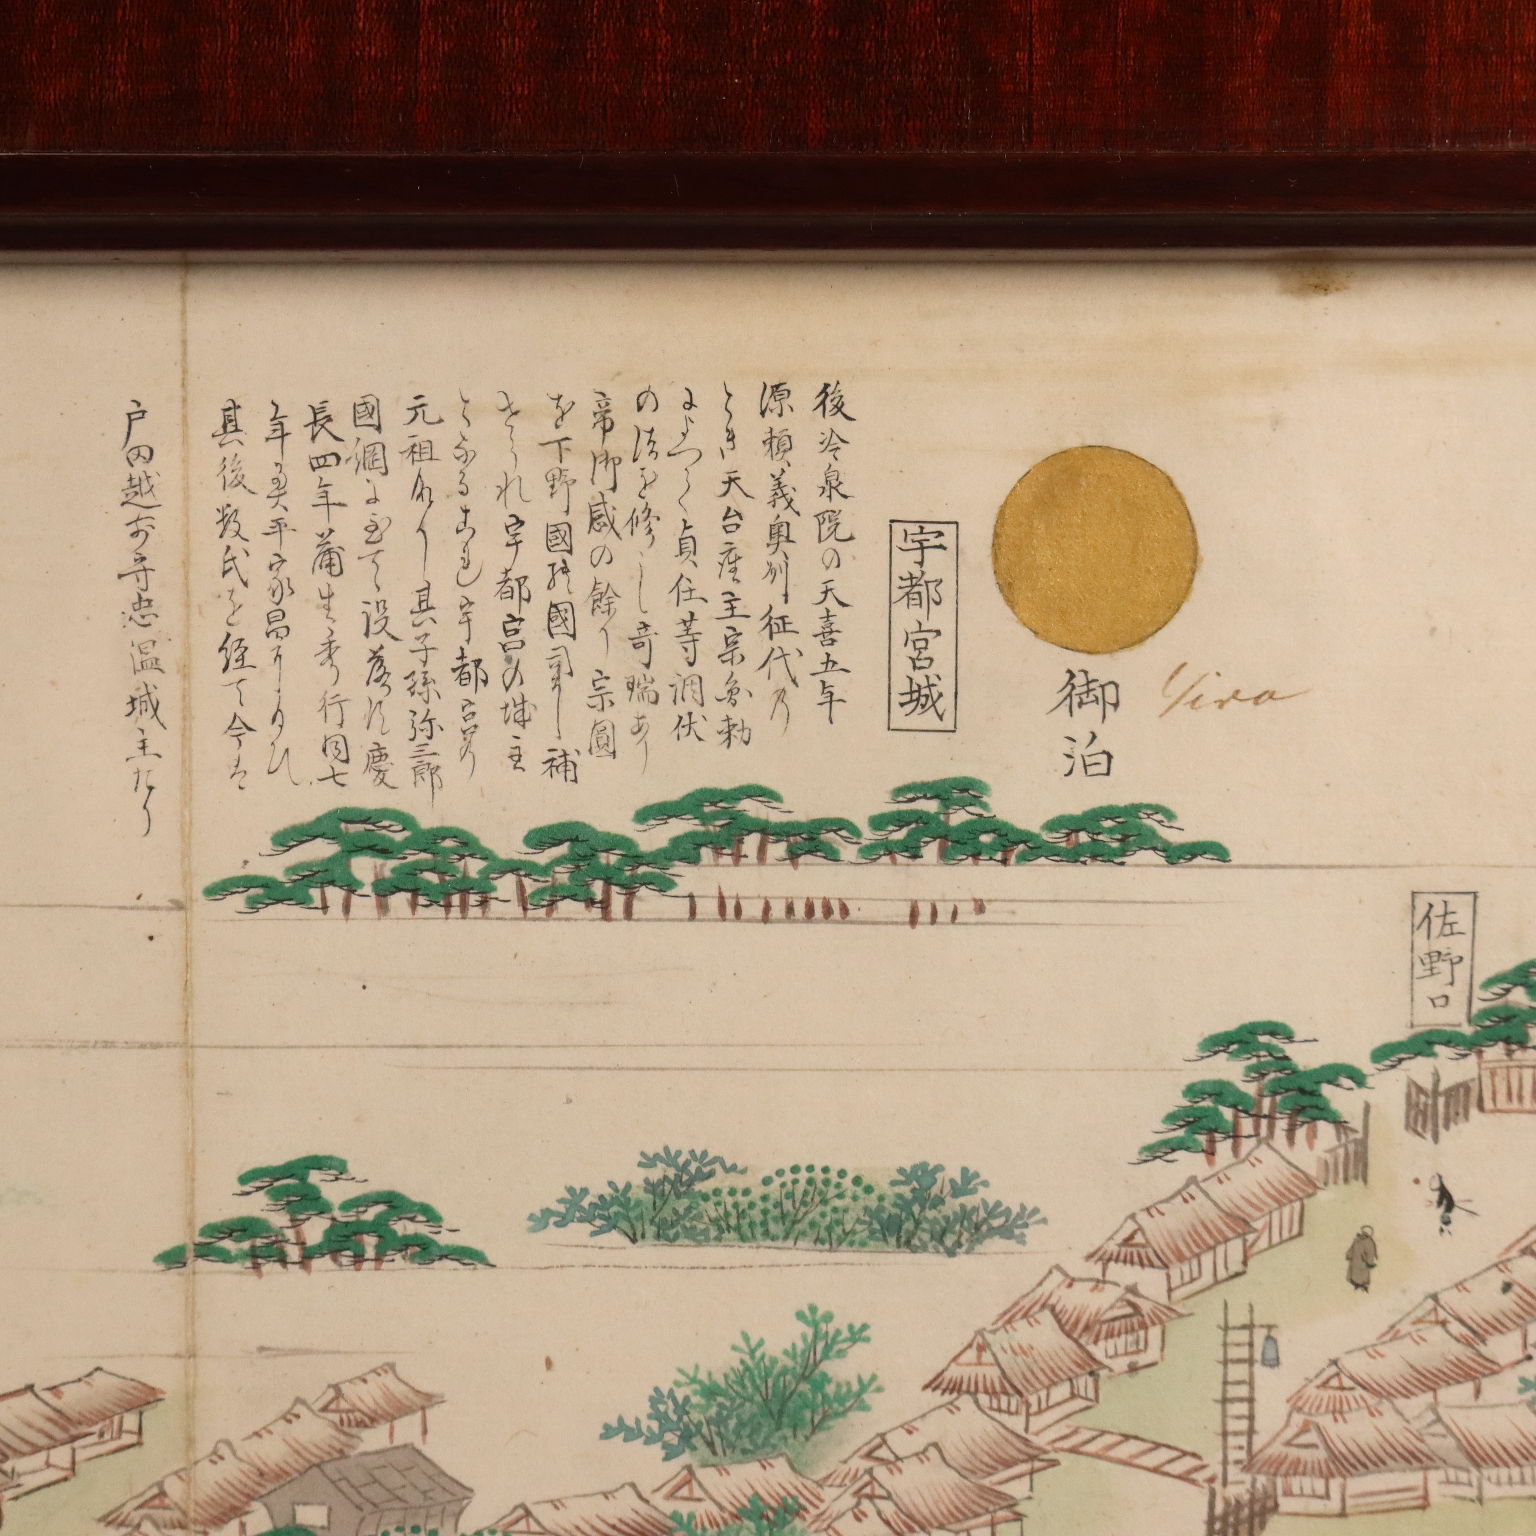 佐野口
御泊
宇都宮城
後冷泉院の天喜五年
源頼義奥州征伐の
とき天台座主宗圓勅
によつて貞任等調伏
の法を修し奇瑞あり
帝御感の餘り宗圓
を下野國司に補
せられ宇都宮の城主
となるこれ宇都宮の
元祖なり其子孫弥三郎
國綱に至て没落す慶
長四年蒲生秀行同七
年奥平家昌
其後数氏を経て今は
戸田越前守忠温城主たり